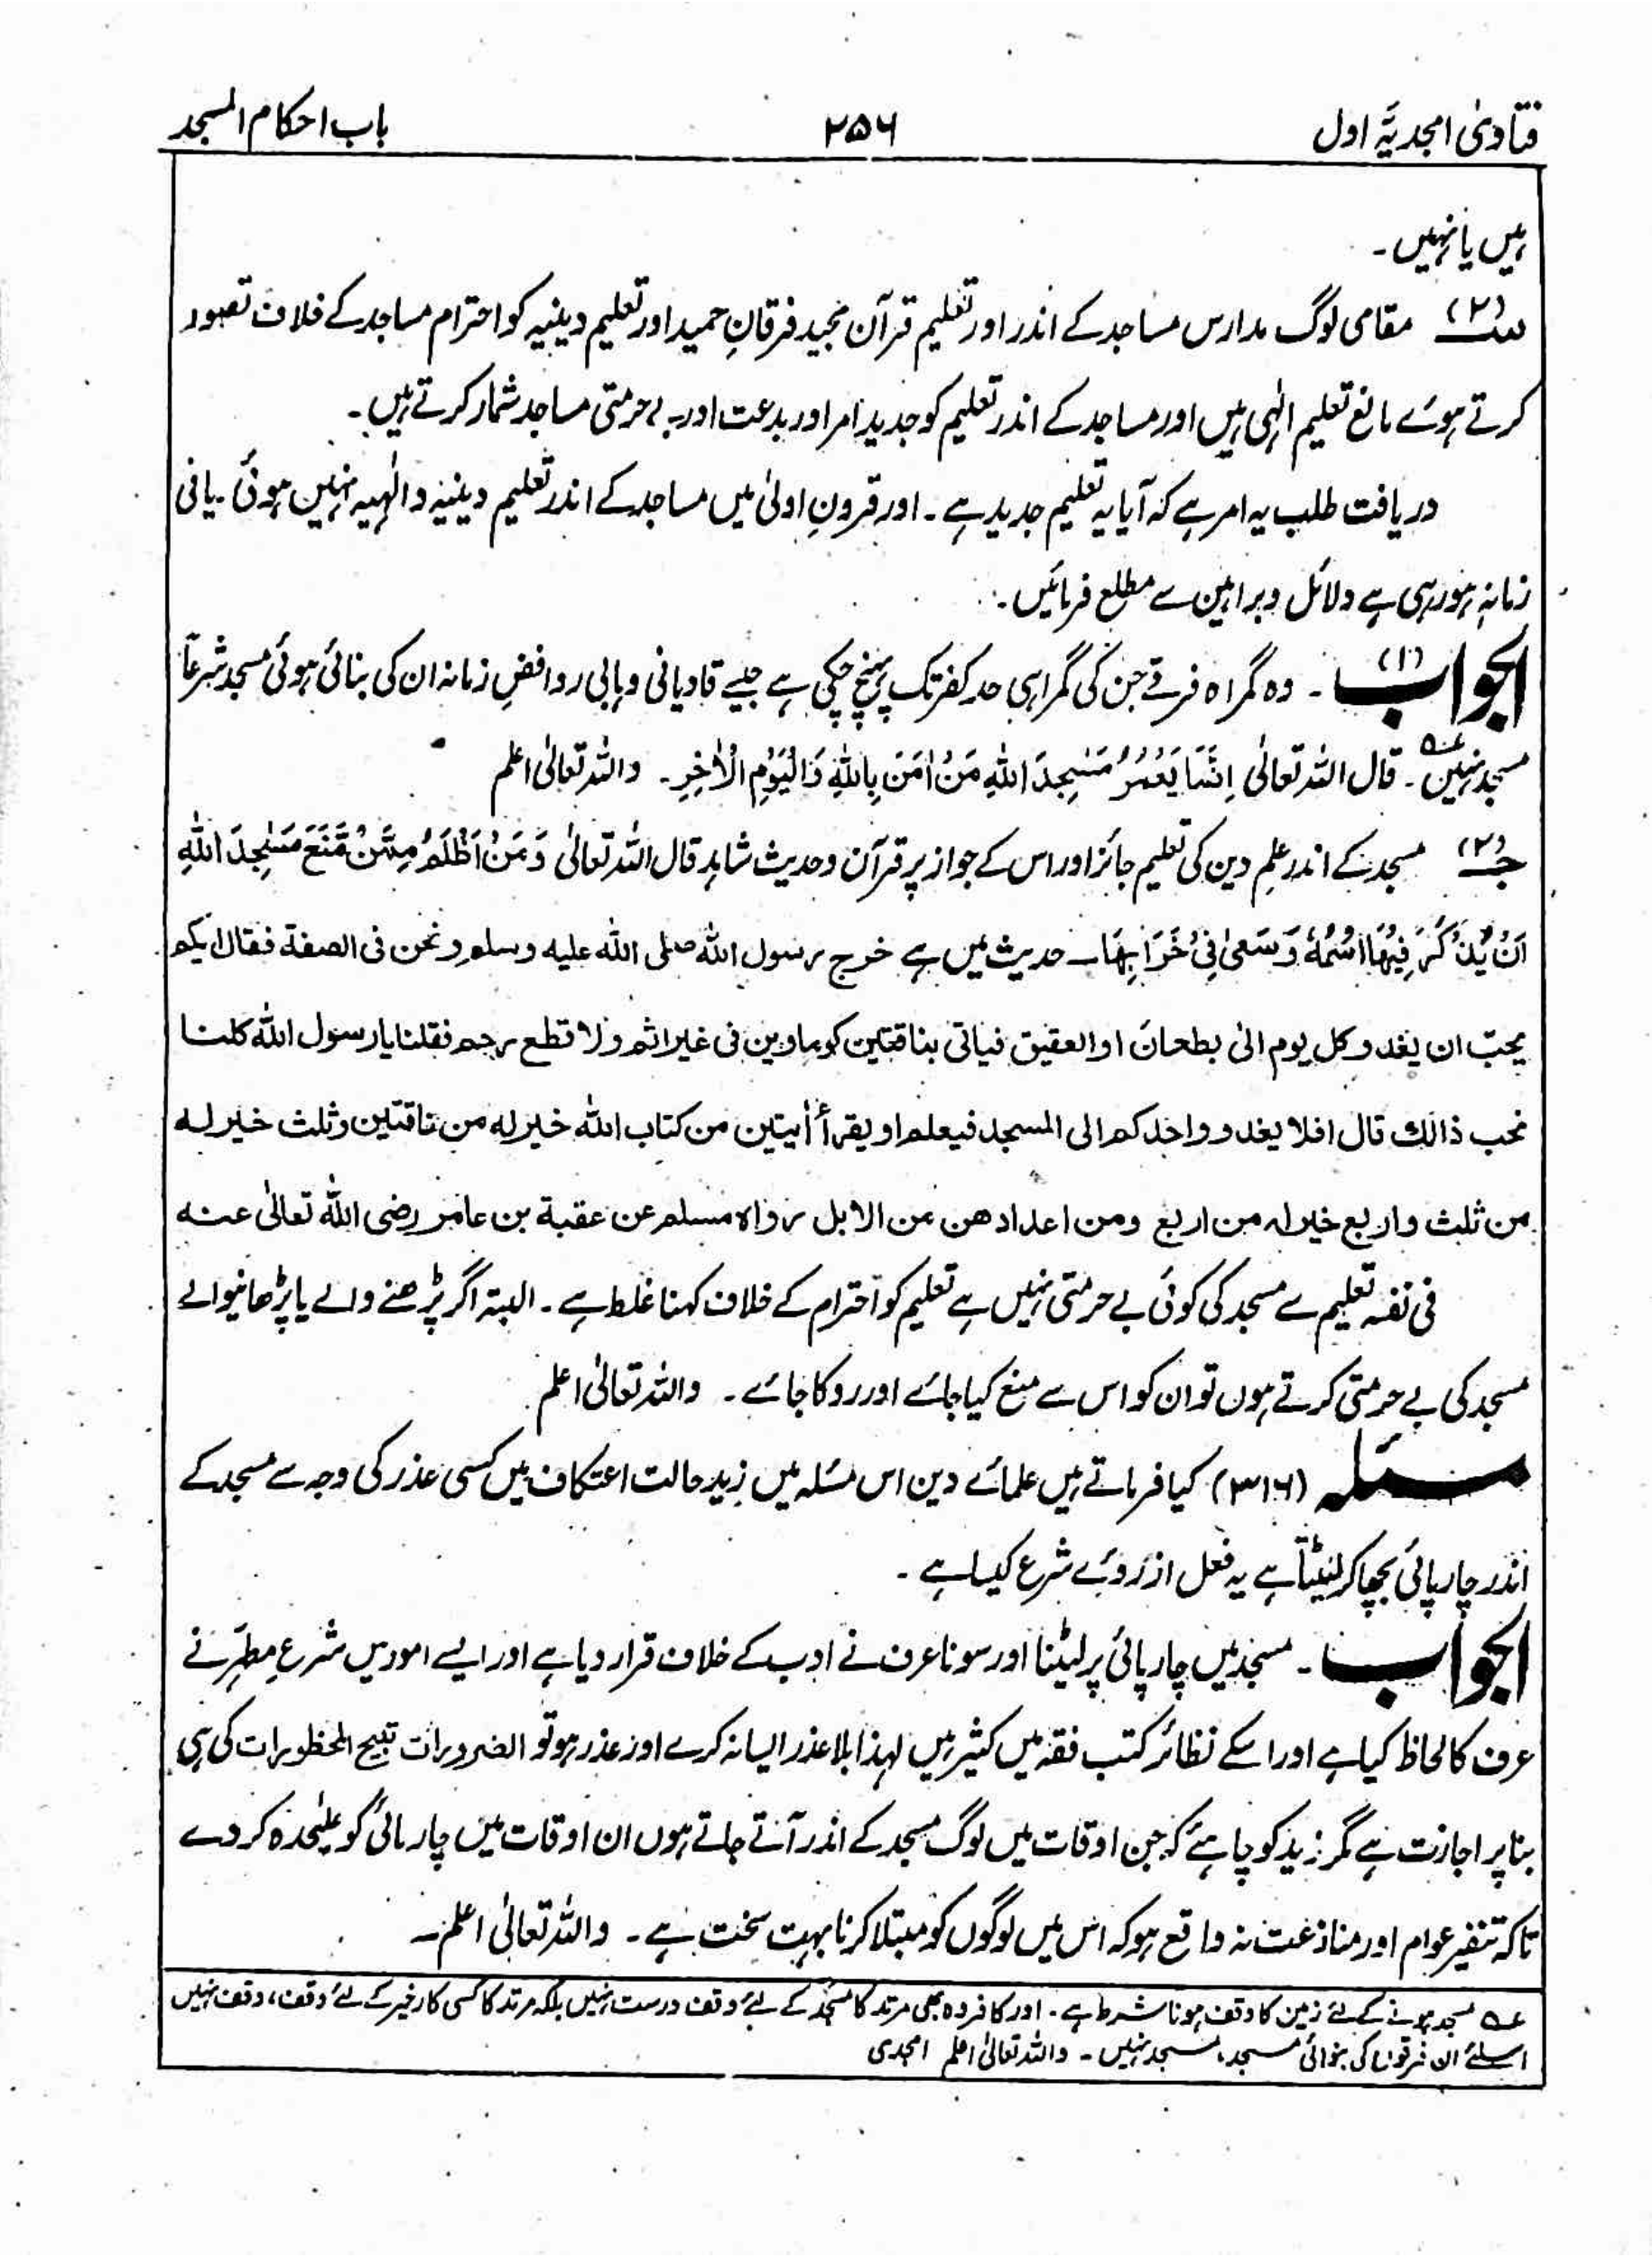 فتاویٰ امجدیہ اول ۲۵۶ باب احکام المسجد
ہیں یا نہیں ۔
س (۲) مقامی لوگ مدارس مساجد کے اندر اور تعلیم قرآن مجید فرقانِ حمید اور تعلیم دینیہ کو احترام مساجد کے خلاف تصور
کرتے ہوئے مانع تعلیم الٰہی ہیں اور مساجد کے اندر تعلیم کو جدید امر اور بدعت اور بے حرمتی مساجد شمار کرتے ہیں ۔
دریافت طلب یہ امر ہے کہ آیا یہ تعلیم جدید ہے ۔ اور قرونِ اولیٰ میں مساجد کے اندر تعلیم دینیہ و الٰہیہ نہیں ہوئی ۔ یا فی
زمانہٖ ہو رہی ہے دلائل و براہین سے مطلع فرمائیں ۔
الجواب (۱) ۔ وہ گمراہ فرقے جن کی گمراہی حد کفر تک پہنچ چکی ہے جیسے قادیانی وہابی روافضِ زمانہ ان کی بنائی ہوئی مسجد شرعاً
مسجد نہیں عہ ۔ قال اللہ تعالیٰ اِنَّمَا یَعْمُرُ مَسٰجِدَ اللہِ مَنْ اٰمَنَ بِاللہِ وَالْیَوْمِ الْاٰخِرِ ۔ واللہ تعالیٰ اعلم
ج (۲) مسجد کے اندر علم دین کی تعلیم جائز اور اس کے جواز پر قرآن و حدیث شاہد قال اللہ تعالیٰ وَمَنْ اَظْلَمُ مِمَّنْ مَّنَعَ مَسٰجِدَ اللہِ
اَنْ یُّذْکَرَ فِیْهَا اسْمُهٗ وَسَعٰی فِیْ خَرَابِهَا ۔ حدیث میں ہے خرج رسول اللہ صلی اللہ علیہ وسلم ونحن فی الصفة فقال ایکم
یحبّ ان یغدو کل یوم الیٰ بطحان او العقیق فیاتی بناقتین کوماوین فی غیر اثم ولا قطع رحم فقلنا یا رسول اللہ کلنا
نحب ذالك قال افلا یغدو واحدکم الی المسجد فیعلم او یقرأ اٰیتین من کتاب اللہ خیر له من ناقتین وثلث خیر له
من ثلث واربع خیر له من اربع ومن اعدادهن من الابل رواہ مسلم عن عقبة بن عامر رضی اللہ تعالیٰ عنه
فی نفسہ تعلیم سے مسجد کی کوئی بے حرمتی نہیں ہے تعلیم کو احترام کے خلاف کہنا غلط ہے ۔ البتہ اگر پڑھنے والے یا پڑھانیوالے
مسجد کی بے حرمتی کرتے ہوں تو ان کو اس سے منع کیا جائے اور روکا جائے ۔ واللہ تعالیٰ اعلم
مسئلہ (۳۱۶) کیا فرماتے ہیں علمائے دین اس مسئلہ میں زید حالت اعتکاف میں کسی عذر کی وجہ سے مسجد کے
اندر چارپائی بچھا کر لیٹتا ہے یہ فعل از روئے شرع کیسا ہے ۔
الجواب ۔ مسجد میں چارپائی پر لیٹنا اور سونا عرف نے ادب کے خلاف قرار دیا ہے اور ایسے امور میں شرعِ مطہّر نے
عرف کا لحاظ کیا ہے اور اسکے نظائر کتب فقہ میں کثیر ہیں لہذا بلا عذر ایسا نہ کرے اور عذر ہو تو الضرورات تبیح المحظورات کی ہی
بنا پر اجازت ہے مگر زید کو چاہئے کہ جن اوقات میں لوگ مسجد کے اندر آتے جاتے ہوں ان اوقات میں چارپائی کو علیٰحدہ کر دے
تا کہ تنفیر عوام اور منازعت نہ واقع ہو کہ اس میں لوگوں کو مبتلا کرنا بہت سخت ہے ۔ واللہ تعالیٰ اعلم ۔
عہ مسجد ہونے کے لئے زمین کا وقف ہونا شرط ہے ۔ اور کافر وہ بھی مرتد کا مسجد کے لئے وقف درست نہیں بلکہ مرتد کا کسی کار خیر کے لئے وقف، وقف نہیں
اسلئے ان فرقوں کی بنوائی مسجد، مسجد نہیں ۔ واللہ تعالیٰ اعلم امجدی